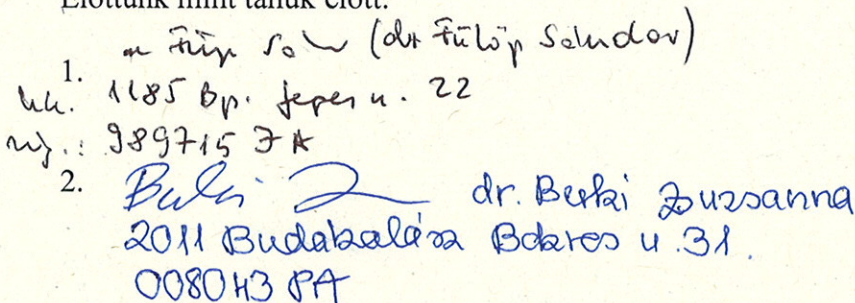 Előttünk mint tanúk előtt:
(dr Fülöp Sándor)
1.
1185 Bp. u. 22
989715 JA
2. dr. Berki Zsuzsanna
2011 Budakalász Bokros u. 31.
008043 PA